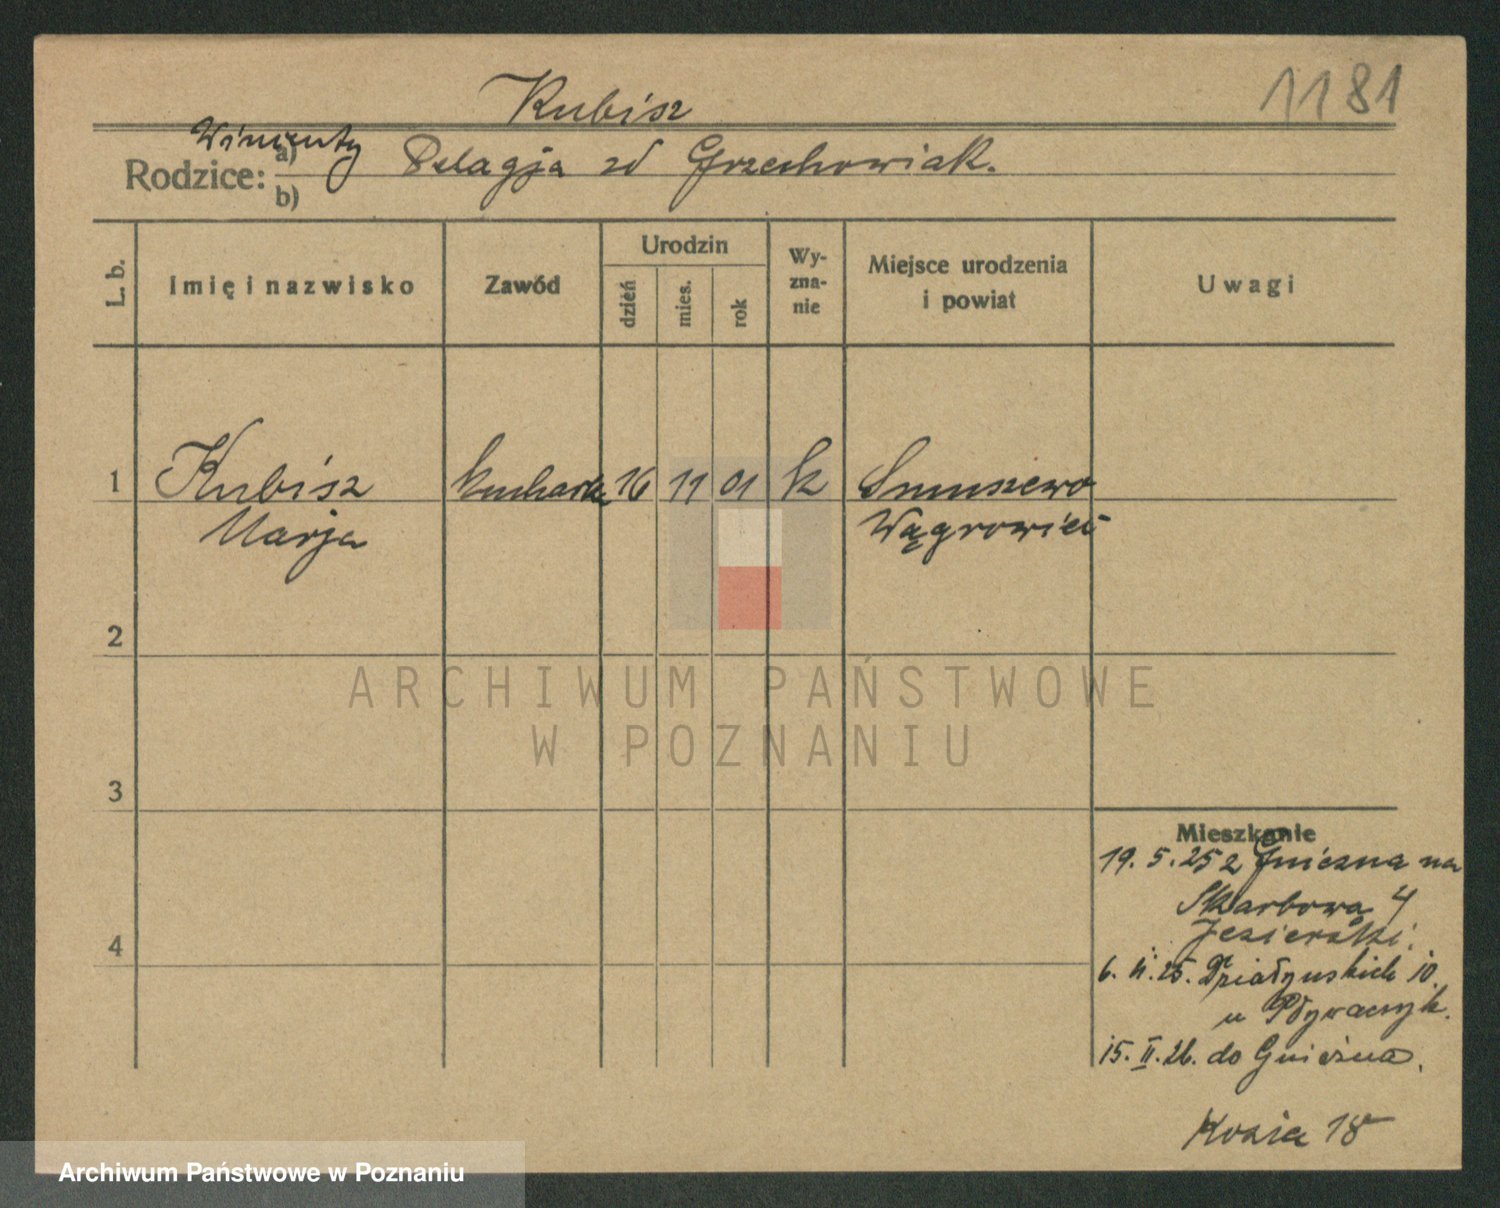 1181
Kubisz
Wincenty
Rodzice: a) Pelagja zd Grzechowiak.
b)
L. b.
Imię i nazwisko
Zawód
Urodzin
dzień
mies.
rok
Wy-
zna-
nie
Miejsce urodzenia
i powiat
Uwagi
1 Kubisz kucharka 16 11 01 k
Marja Wągrowiec
2
ARCHIWUM PAŃSTWOWE
W POZNANIU
3
Mieszkanie
19. 5. 25 z Gniezna na
Skarbowa 4
4
Jezierski.
6. 25. Działyńskich 10.
u
15. II. 26. do Gniezna.
Kozia 18
Archiwum Państwowe w Poznaniu